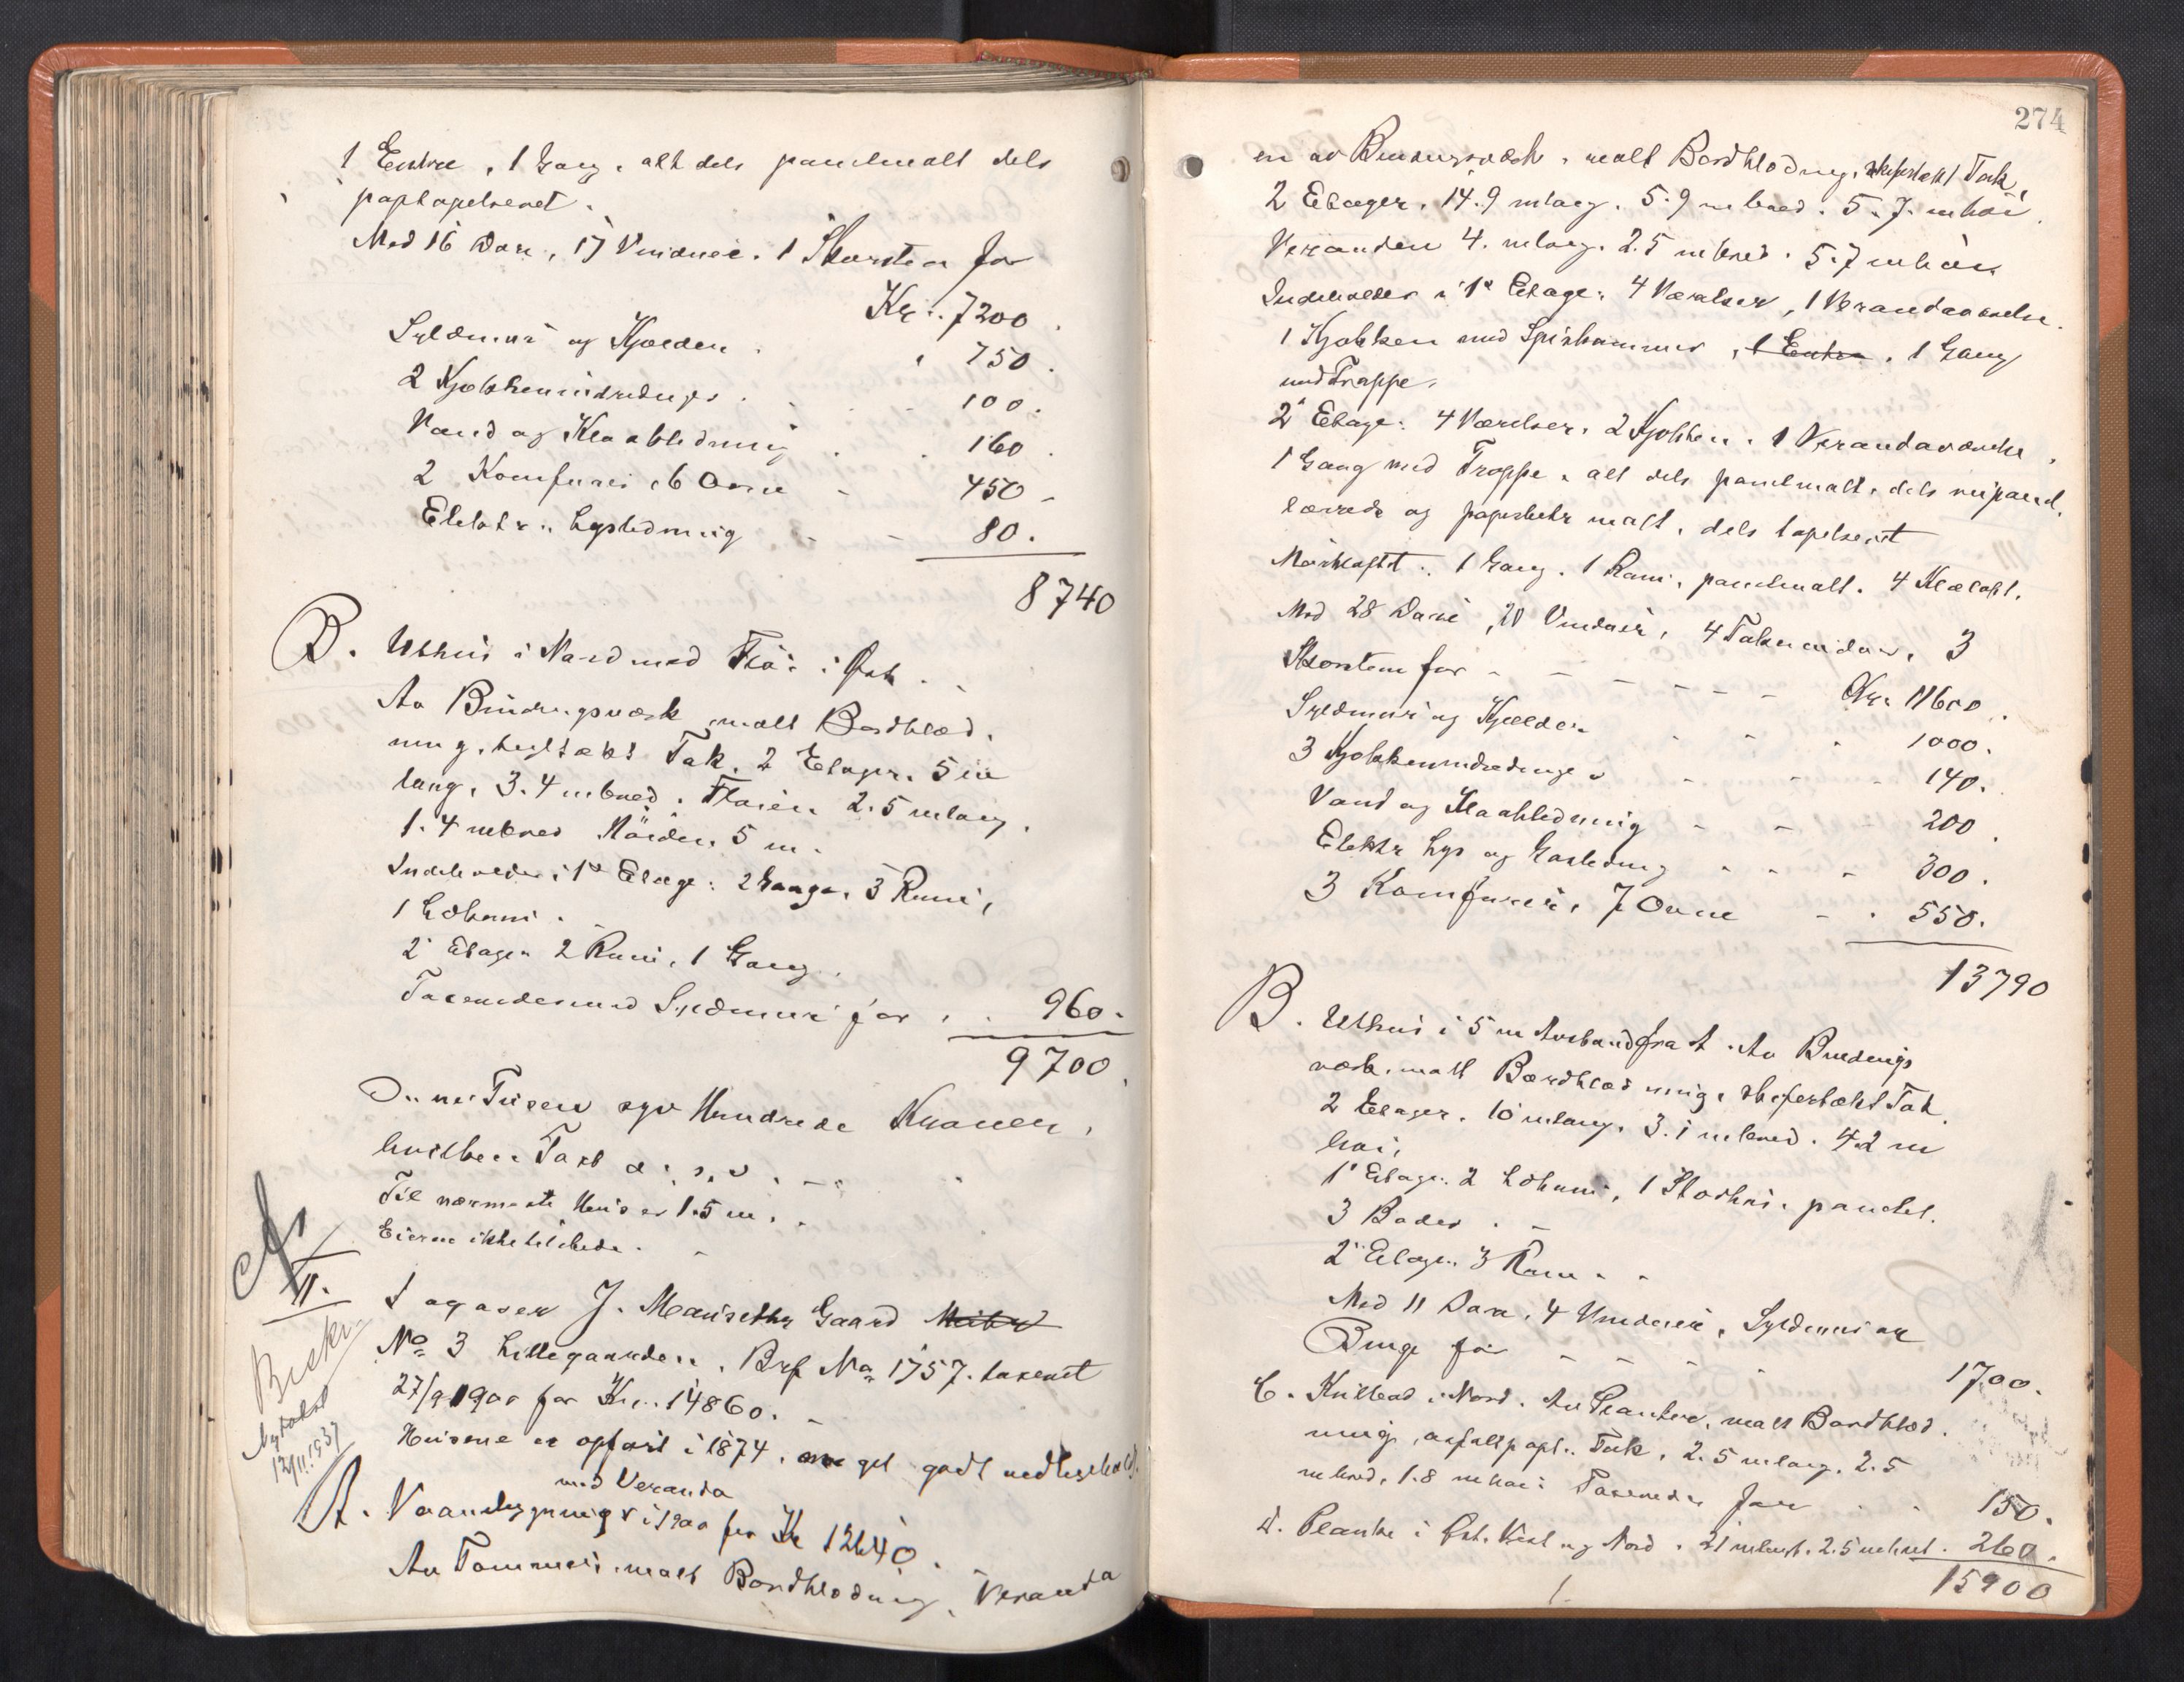 1 Entre, 1 Gang, alt dels panelmalt dels
paptapetseret.
Med 16 Døre, 17 Vinduer. 1 Skorsten for
Kr. 7200.
Syldmur og Kjælder " 750.
2 Kjøkkenindredninger - 100.
Vand og Kloakledning 160.
2 Komfurer, 6 Ovne - 450 -
Elektr. Lysledning - - 80.
8740
B. Uthus i Nord med Fløi i Øst. -
Av Bindingsværk, malt Bordklæd-
ning, teglstækt Tak. 2 Etager. 5 m
lang, 3.4 m bred. Fløien 2.5 m lang,
1.4 m bred Høiden 5 m.
Indeholder i 1ste Etage: 2 Gange, 3 Rum,
1 Lokum.
2' Etage: 2 Rum, 1 Gang.
Taxeredes med Syldmur for . . 960.
9700.
Ni Tusen syv Hundrede Kroner,
hvilken Taxt o. s. v. -
Til nærmeste Hus er 1.5 m.
Eieren ikke tilstede. -
II.
J. Mauseths Gaard
No 3 Lillegaarden. Brf No 1757. taxeret
27/9 1900 for Kr. 14860. -
Husene er opført i 1874, meget godt vedlikeholdt.
Nytakst
12/11.1937
med Veranda
A. Vaaningsbygning i 1900 for Kr 12640.
Av Tømmer, malt Bordklædning, Veranda
274
en av Bindingsværk, malt Bordklædning, skifertækt Tak,
2 Etager, 14.9 m lang. 5.9 m bred. 5.7 m høi.
Verandaen 4. m lang. 2.5 m bred. 5.7 m høi.
Indeholder i 1ste Etage: 4 Værelser, 1 Verandaværelse.
1 Kjøkken med Spiskammer, 1 Entre, 1 Gang
med Trappe.
2' Etage: 4 Værelser, 2 Kjøkken. 1 Verandaværelse,
1 Gang med Trappe, alt dels panelmalt, dels
og malt, dels tapetseret
Mørkloftet: 1 Gang. 1 Rum, panelmalt. 4 Klæloft.
Med 28 Døre, 20 Vinduer, 4 Takvinduer, 3
Skorsten for - - - - - - Kr. 11600.
Syldmur og Kjælder - - - 1000.
3 Kjøkkenindredninger - - - 140.
Vand og Kloakledning - - - 200.
Elektr Lys og Gasledning - - - 300.
3 Komfurer, 7 Ovne - - 550.
13790
B. Uthus i 5 m Avstand fra A. Av Bindings
værk, malt Bordklædning, skifertækt Tak.
2 Etager. 10 m lang, 3.1 m bred. 4.2 m
høi,
1' Etage: 2 Lokum, 1 panelt.
3 Boder. -
2' Etage: 3 Rum - -
Med 11 Døre, 4 Vinduer, Syldmur og
Binge for - - - - - 1700.
C. i Nord. Av Planker, malt Bordklæd-
ning, asfaltpapt. Tak, 2.5 m lang, 2.5
m bred, 1.8 m høi: Taxeredes for - - 150.
D. Planke i Øst, Vest og Nord. 21 m langt. 2.5 m høit. 260.
15900